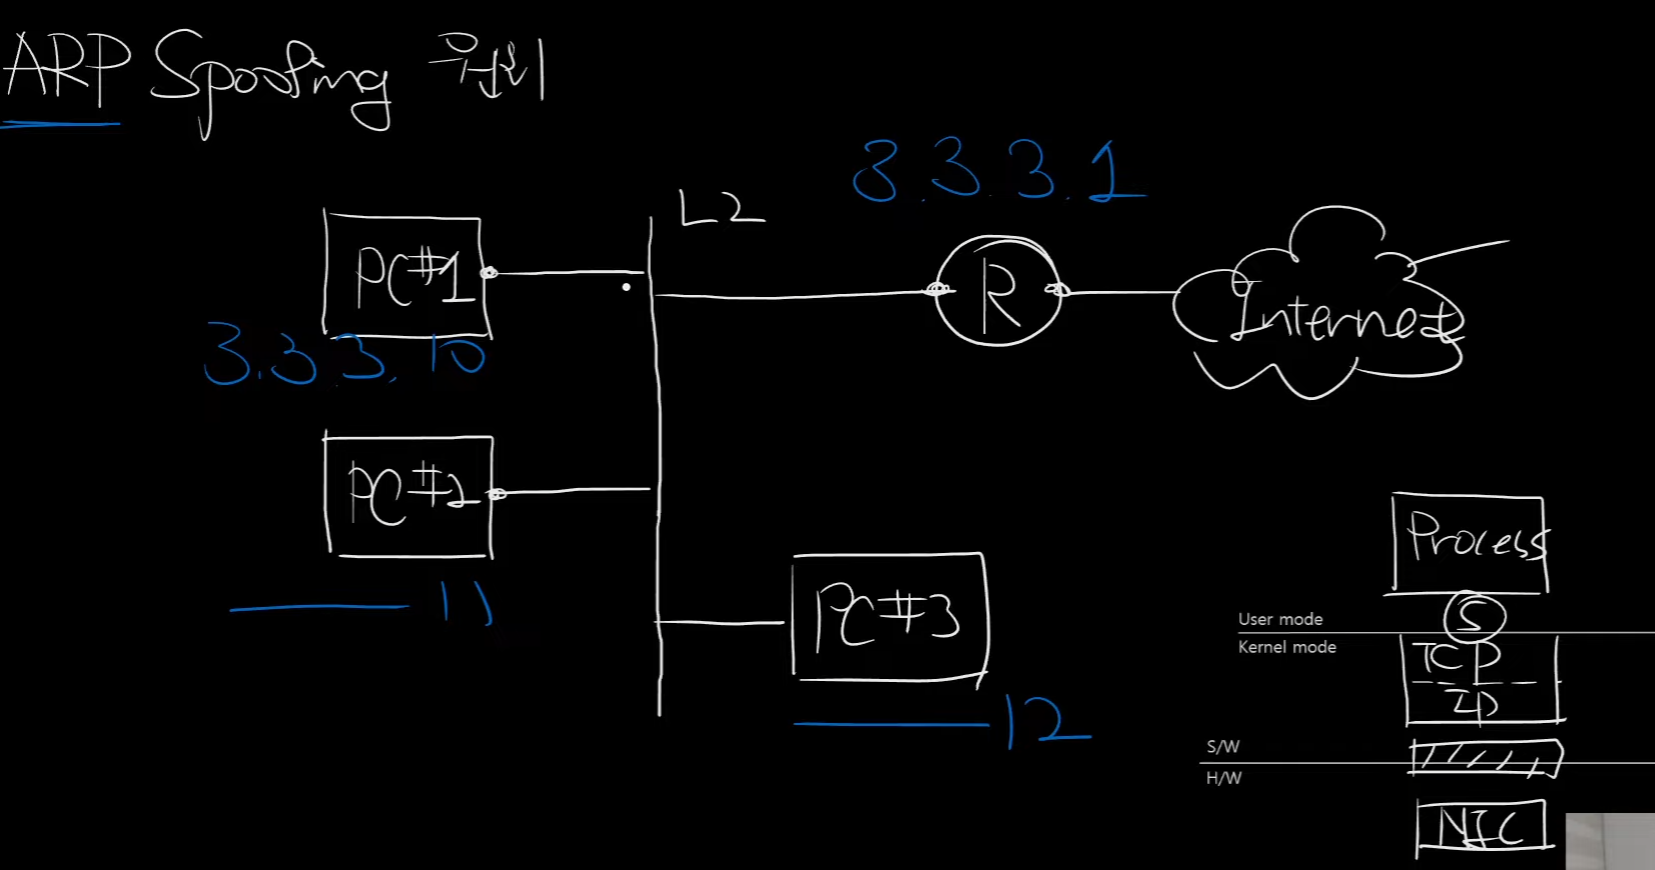 ARP Spoofing 원리
3.3.3.1
L2
PC#1
R
Internet
3.3.3.10
PC#2
11
PC#3
12
Process
S
User mode
Kernel mode
TCP
IP
S/W
H/W
NIC